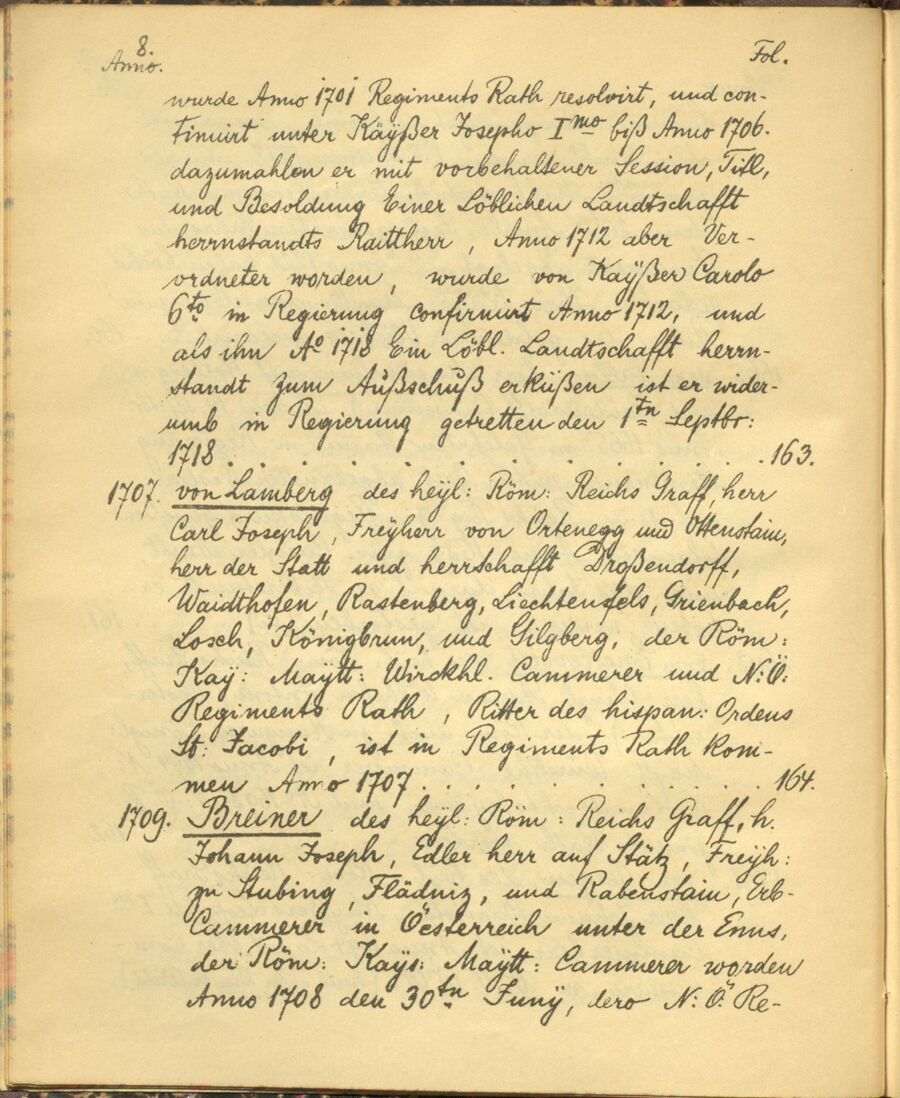 8.
Anno. Fol.
wurde Anno 1701 Regiments Rath resolvirt, und con-
tinuirt unter Käÿßer Josepho I mo biß Anno 1706.
dazumahlen er mit vorbehaltener Session, Titl,
und Besoldung Einer Löblichen Landtschafft
herrnstandts Raittherr, Anno 1712 aber Ver-
ordneter worden, wurde von Kaÿßer Carolo
6to in Regierung confirmirt Anno 1712, und
als ihn Ao 1713 Ein Löbl. Landtschafft herrn-
standt zum Außschuß erküßen ist er wider-
umb in Regierung getretten den 1tn Septbr:
1718 . . . . . . . . . 163.
1707. von Lamberg des heÿl: Röm: Reichs Graff, herr
Carl Joseph, Freÿherr von Ortenegg und Ottenstain,
herr der Statt und herrschafft Droßendorff,
Waidthofen, Rastenberg, Liechtenfels, Grienbach,
Losch, Königbrun, und Gilgberg, der Röm:
Kaÿ: Maÿtt: Wirckhl. Cammerer und N:Ö:
Regiments Rath, Ritter des hispan: Ordens
St: Jacobi, ist in Regiments Rath kom-
men Anno 1707 . . . . . . . . . 164.
1709. Breiner des heÿl: Röm: Reichs Graff, h.
Johann Joseph, Edler herr auf Stätz, Freÿh:
zu Stubing, Flädniz, und Rabenstain, Erb-
Cammerer in Öesterreich unter der Enns,
der Röm: Kaÿs: Maÿtt: Cammerer worden
Anno 1708 den 30tn Junÿ, dero N: Ö: Re-